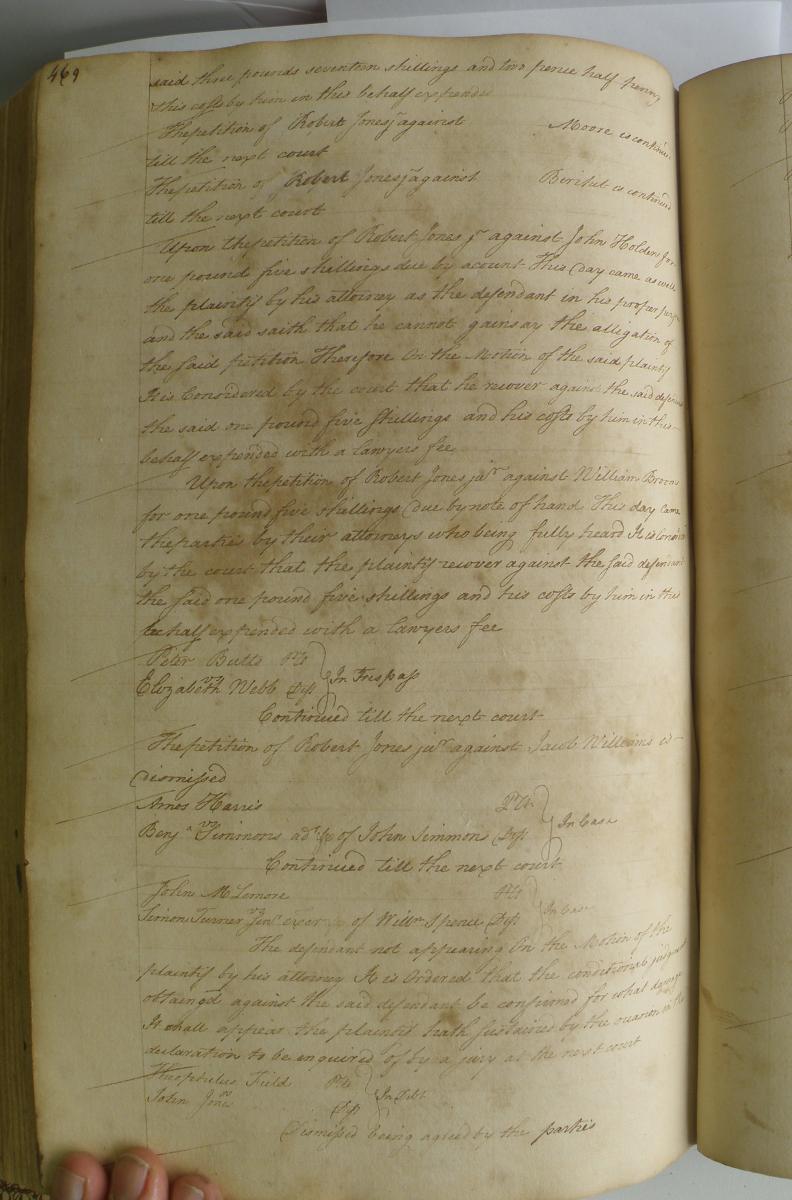 469
said three pounds seventeen shillings and two pence half penny
this costs by him in this behalf expended
The petition of Robert Jones jr against Moore is continued
till the next court
The petition of Robert Jones jr against is continued
till the next court
Upon the petition of Robert Jones jr against John Holden for
one pound five shillings due by acount This day came as well
the plaintif by his attorney as the defendant in his proper
and the said saith that he cannot gainsay the allegation of
the said petition Therefore On the Motion of the said plaintif
It is Considered by the court that he recover against the said
the said one pound five Shillings and his costs by him in this
behalf expended with a lawyers fee
Upon the petition of Robert Jones jur against William Brown
for one pound five shillings due by note of hand This day came
the parties by their attorneys who being fully heard It is
by the court that the plaintif recover against the said
the said one pound five shillings and his costs by him in this
behalf expended with a lawyers fee
Peter Butts Plt
vs In Trespass
Elizabeth Webb Deft
Continued till the next court
The petition of Robert Jones jur against Jacob Williams is
dismissed
Amos Harris Plt
vs In Case
Benja Simmons adr &c of John Simmons Deft
Continued till the next court
John McLemore Plt
vs In Case
Simon Turner of Willm Spence Deft
The defendant not appearing On the Motion of the
plaintif by his attorney It is Ordered that the conditional
obtaind against the said defendant be confirmed for what
It shall appear the plaintif hath sustained by the
declaration to be enquired of by a jury at the next court
Theophilus Field Plt
vs In Debt
John Deft
Dismissed being agreed by the parties